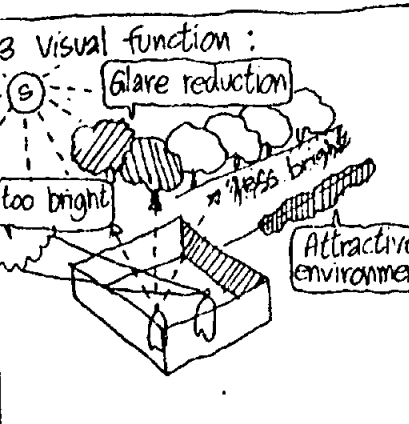 3 Visual function :
Glare reduction
S
too bright
less bright
Attractive
environme